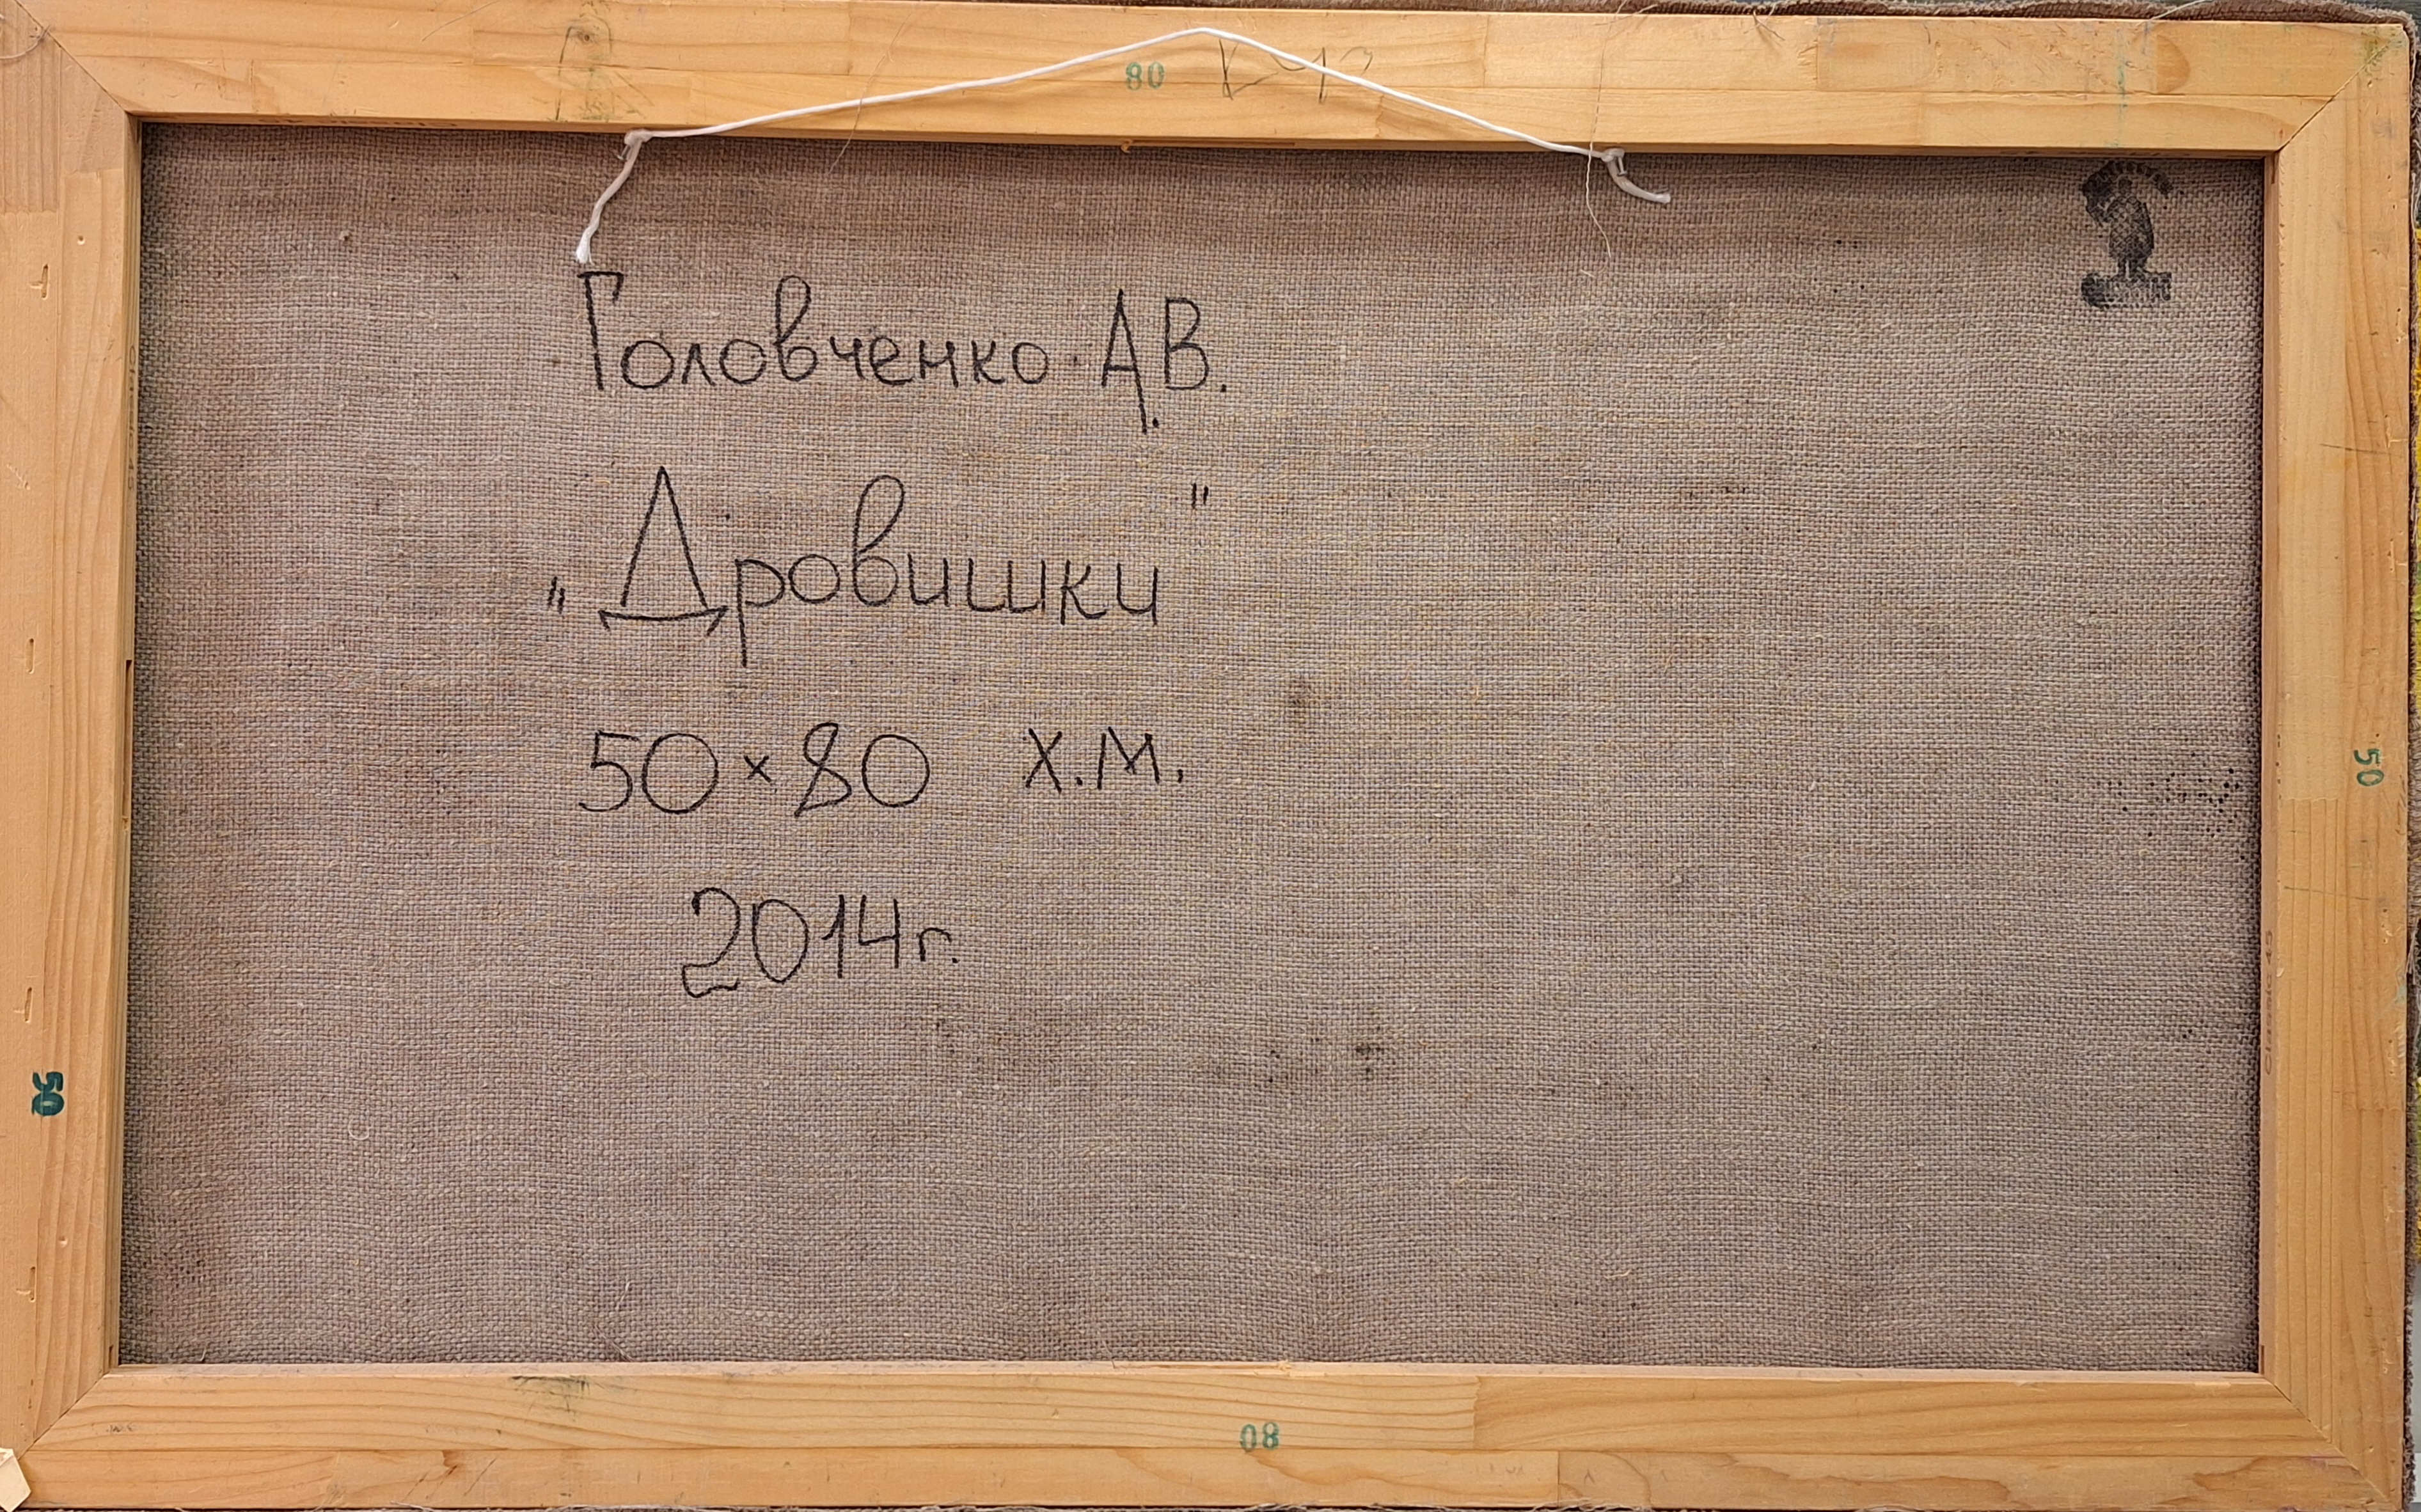 80
Головченко А.В.
„Дровишки"
50×80 х.м.
2014г.
50
50
80